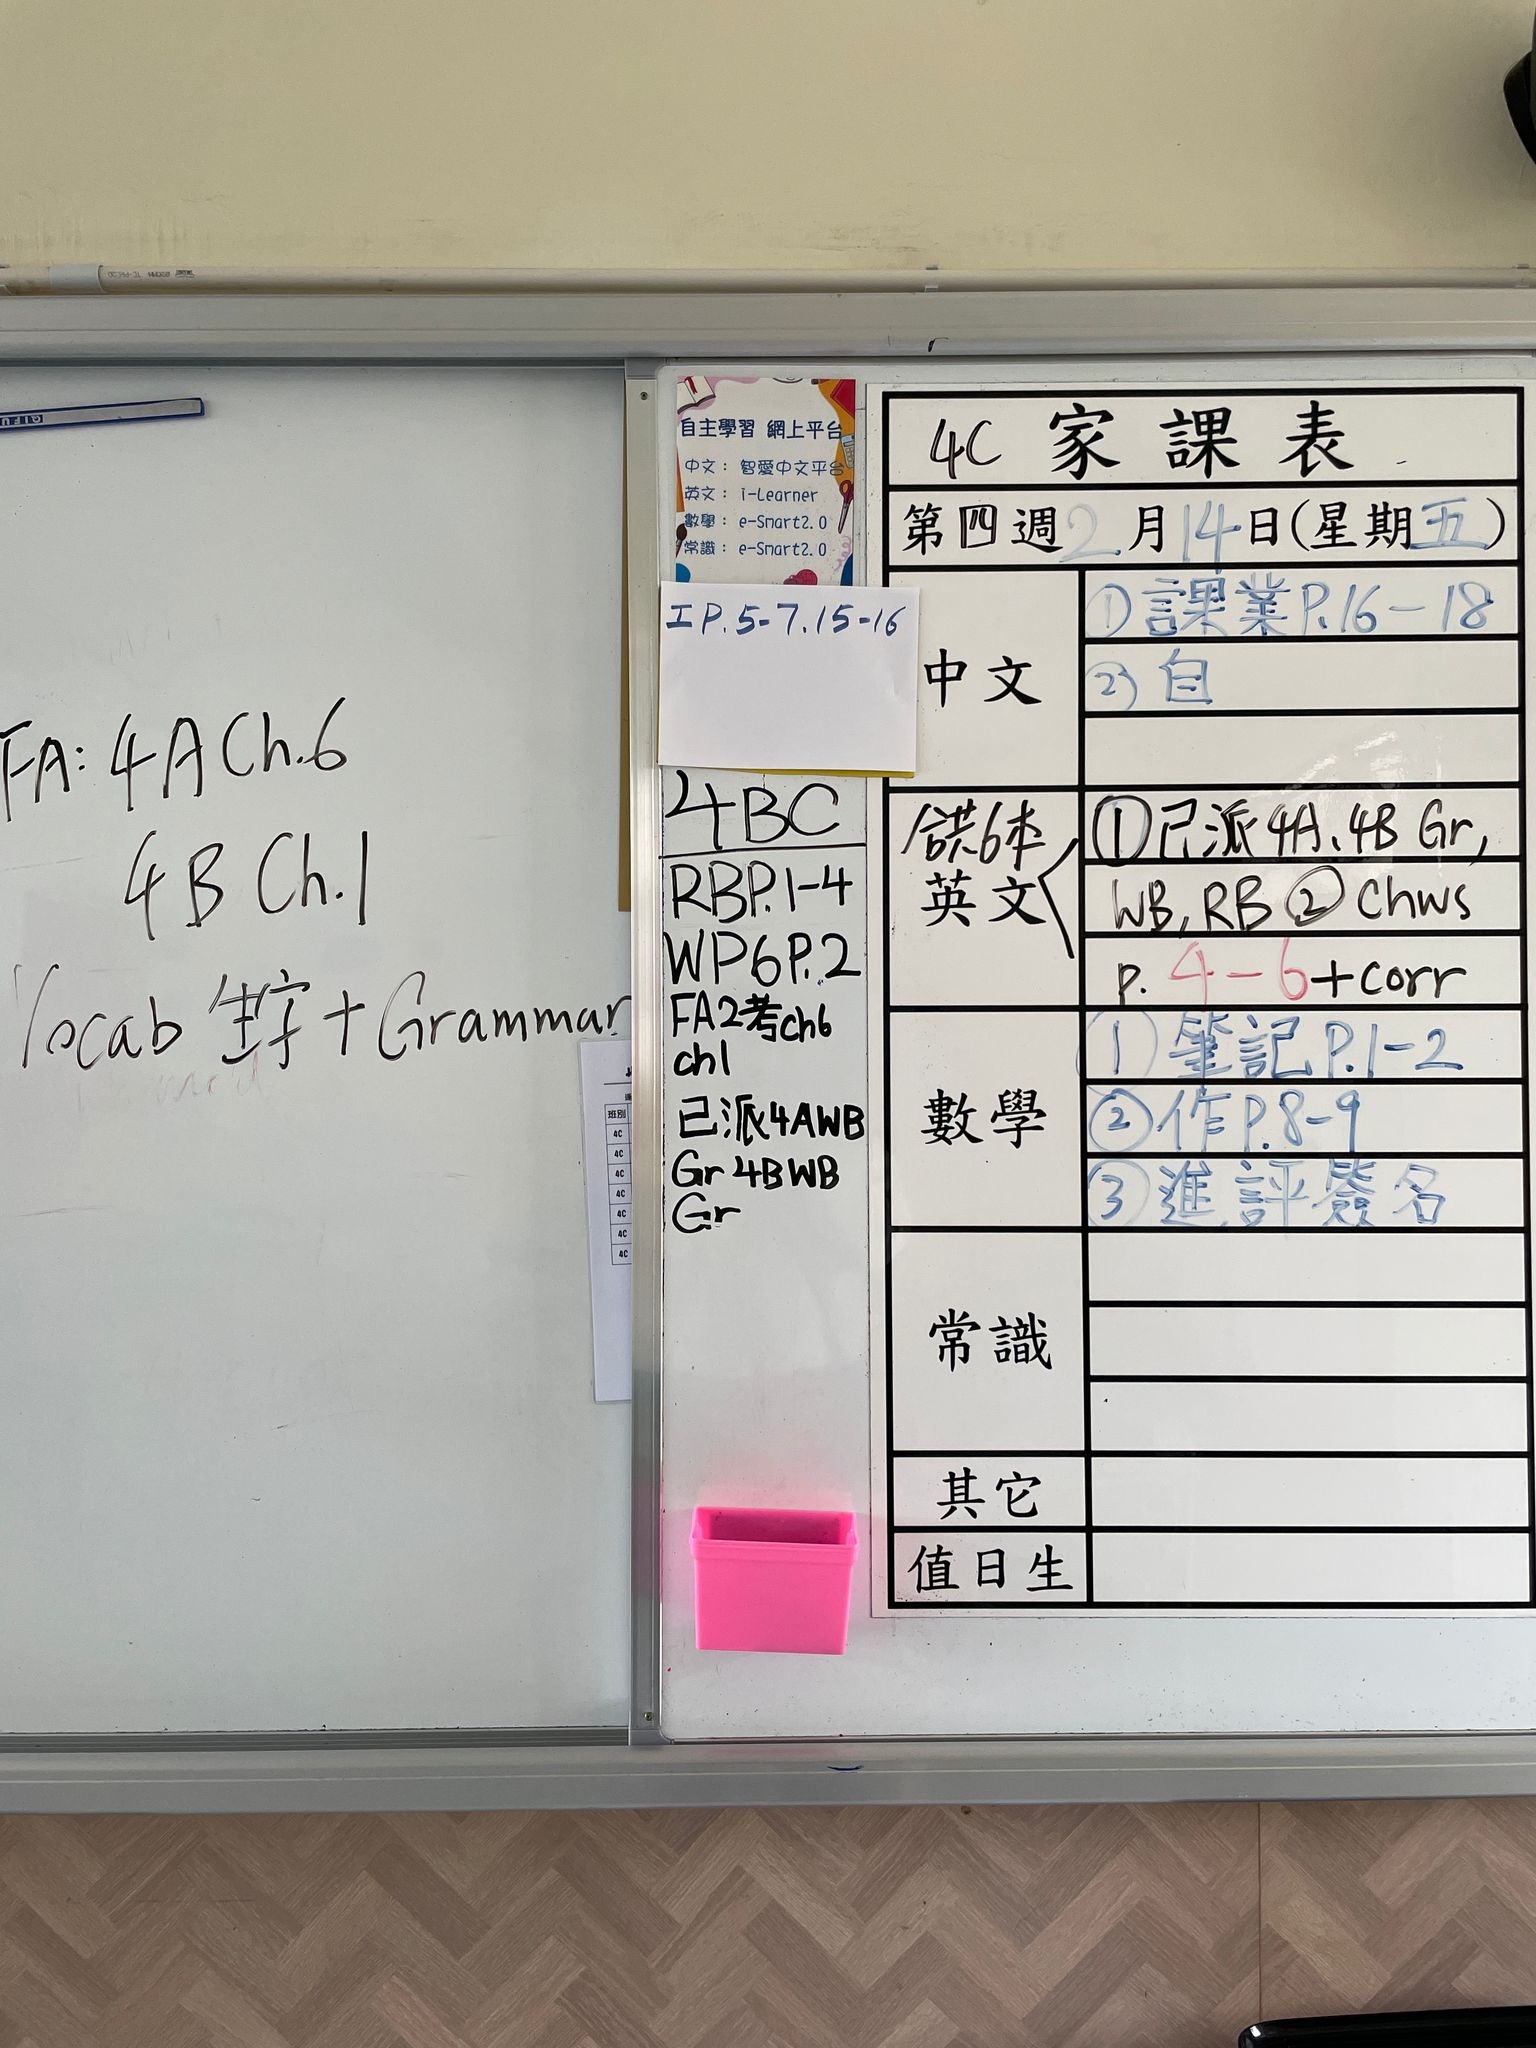 FA: 4A Ch.6
4B Ch.1
Vocab 生字 + Grammar
班別
4C
4C
4C
4C
4C
4C
4C
自主學習 網上平台
中文： 智愛中文平台
英文： i-Learner
數學： e-Smart2.0
常識： e-Smart2.0
工P.5-7.15-16
4BC
RBP.1-4
WP6P.2
FA2考ch6
ch1
已派4AWB
Gr 4BWB
Gr
4C 家課表
第四週2月14日(星期五)
中文
①課業P.16-18
②自
共6本
英文
①已派4A、4B Gr,
WB, RB ② Chws
p. 4-6+corr
數學
①筆記P.1-2
②作P.8-9
③進評簽名
常識
其它
值日生